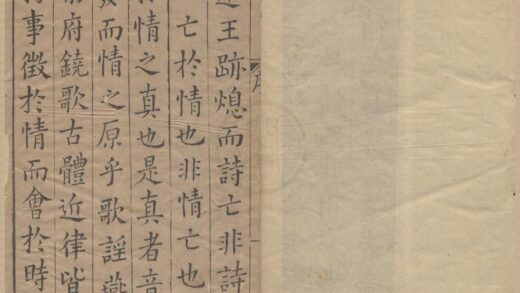 王跡熄而詩亡非詩
亡於情也非情亡也
情之真也是真者音
而情之原乎歌謡燕
府鐃歌古體近律皆
事徵於情而會於時